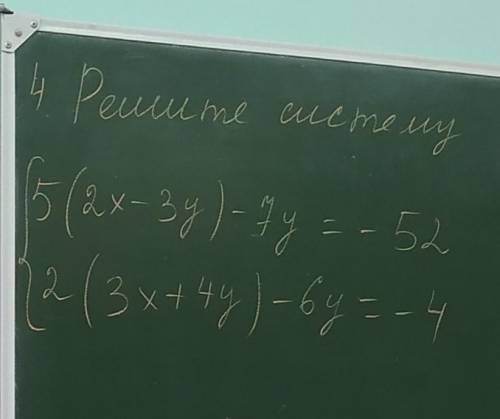 4 Решите систему
5(2x-3y)-7y=-52
2(3x+4y)-6y=-4